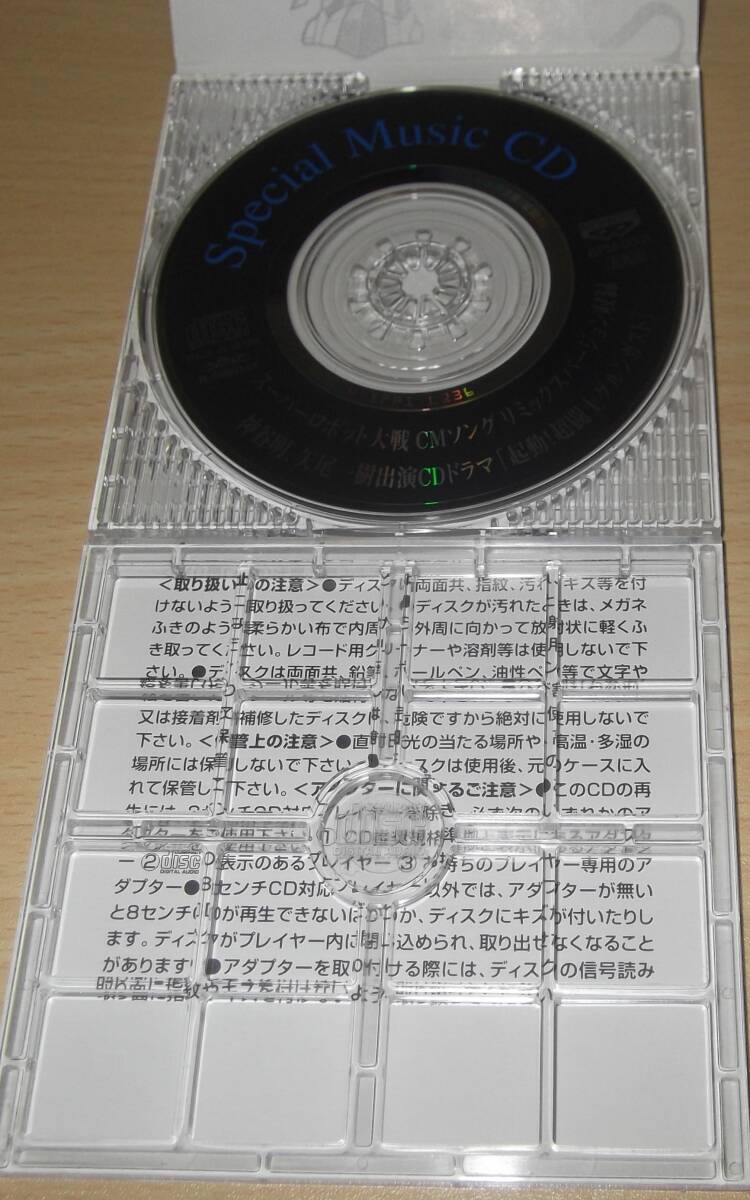 Special Music CD
スーパーロボット大戦 CMソング リミックスバージョン収録
神谷明、矢尾一樹出演CDドラマ「起動!超闘士グルンガスト」
<取り扱い上の注意>●ディスクは両面共、指紋、汚れ、キズ等を付
けないように取り扱ってください。●ディスクが汚れたときは、メガネ
ふきのような柔らかい布で内周から外周に向かって放射状に軽くふ
き取ってください。レコード用クリーナーや溶剤等は使用しないで下
さい。●ディスクは両面共、鉛筆、ボールペン、油性ペン等で文字や
又は接着剤で補修したディスクは、危険ですから絶対に使用しないで
下さい。<保管上の注意>●直射日光の当たる場所や、高温・多湿の
場所には保管しないで下さい。●ディスクは使用後、元のケースに入
れて保管して下さい。<アダプターに関するご注意>●このCDの再
生には、8センチCD対応プレイヤーを除き、必ず次のいずれかのア
ダプターをご使用下さい。① CD推奨規格準
② disc DIGITAL AUDIO 表示のあるプレイヤー ③ お持ちのプレイヤー専用のア
ダプター●8センチCD対応プレイヤー以外では、アダプターが無い
と8センチCDが再生できないばかりか、ディスクにキズが付いたりし
ます。ディスクがプレイヤー内に閉じ込められ、取り出せなくなること
があります。●アダプターを取り付ける際には、ディスクの信号読み